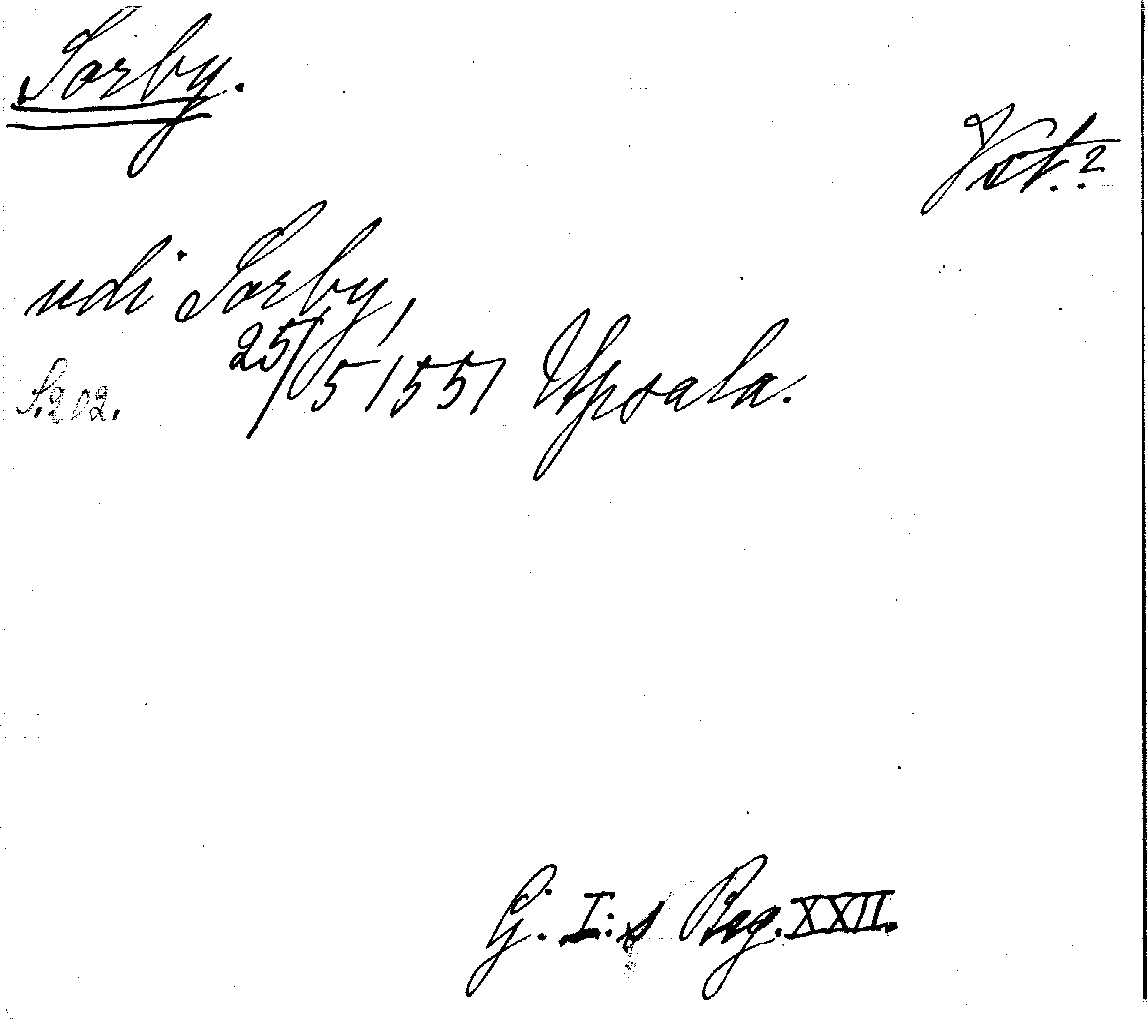 Sorby.
Vst.?
udi Sorby,
25/5 1551 Upsala.
S. 202.
G. I:s Reg. XXII.